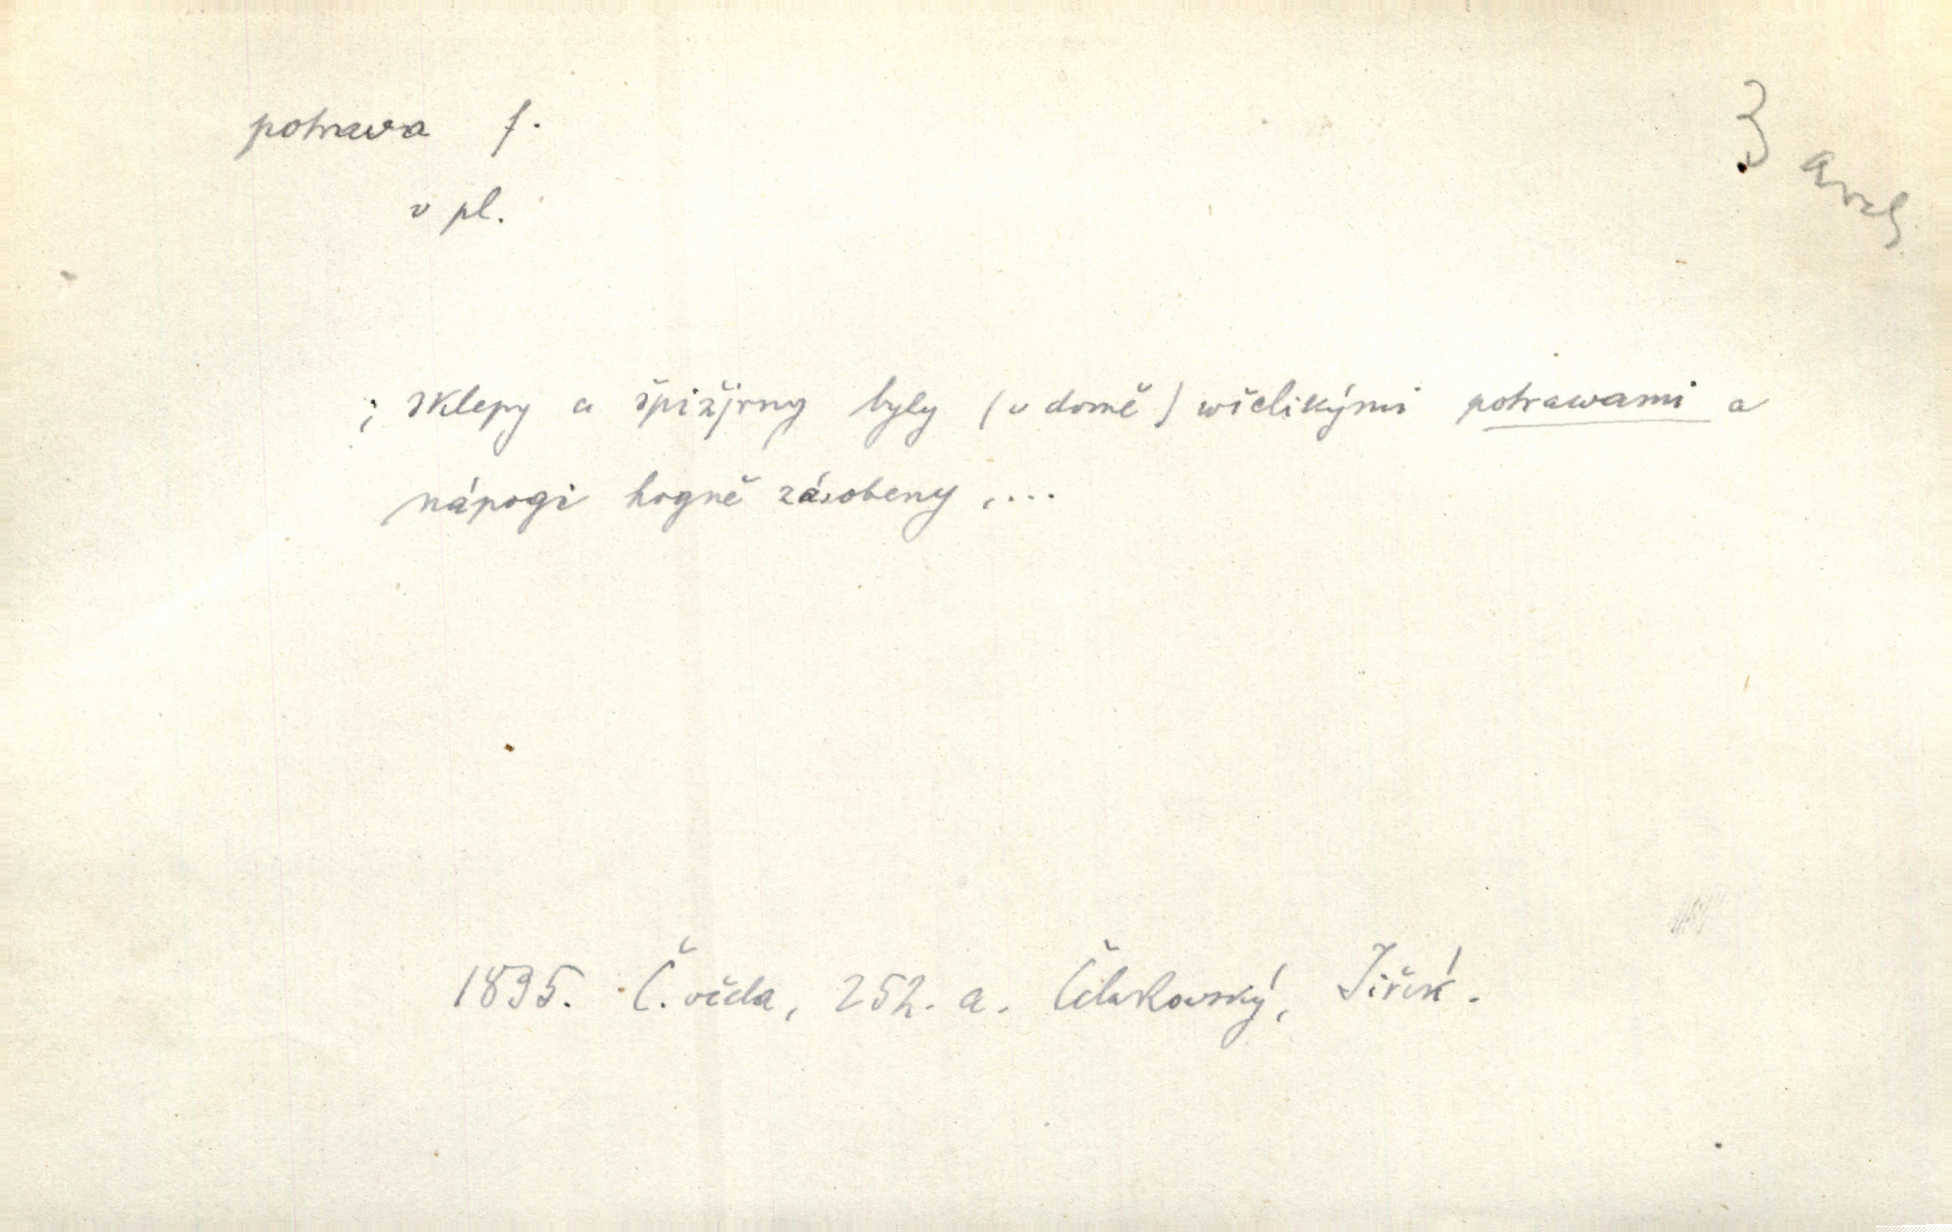 potrava f.
v pl.
; sklepy a špižjrny byly (v domě) wšelikými potrawami a
nápogi hogně zásobeny,...
1835. Č. včela, 252. a. Čelakovský, Jiřík.